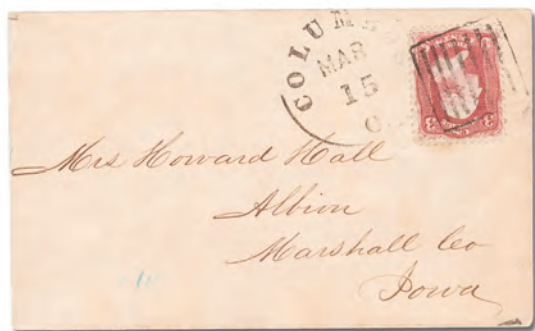 COLUMBUS
MAR
15
O
3 3
Mrs Howard Hall
Albion
Marshall Co
Iowa